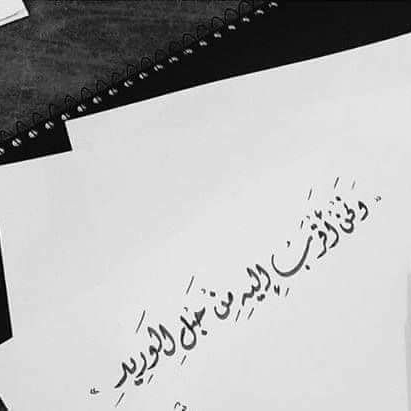 "وَنَحْنُ أَقْرَبُ إِلَيْهِ مِنْ حَبْلِ الوَرِيدِ"